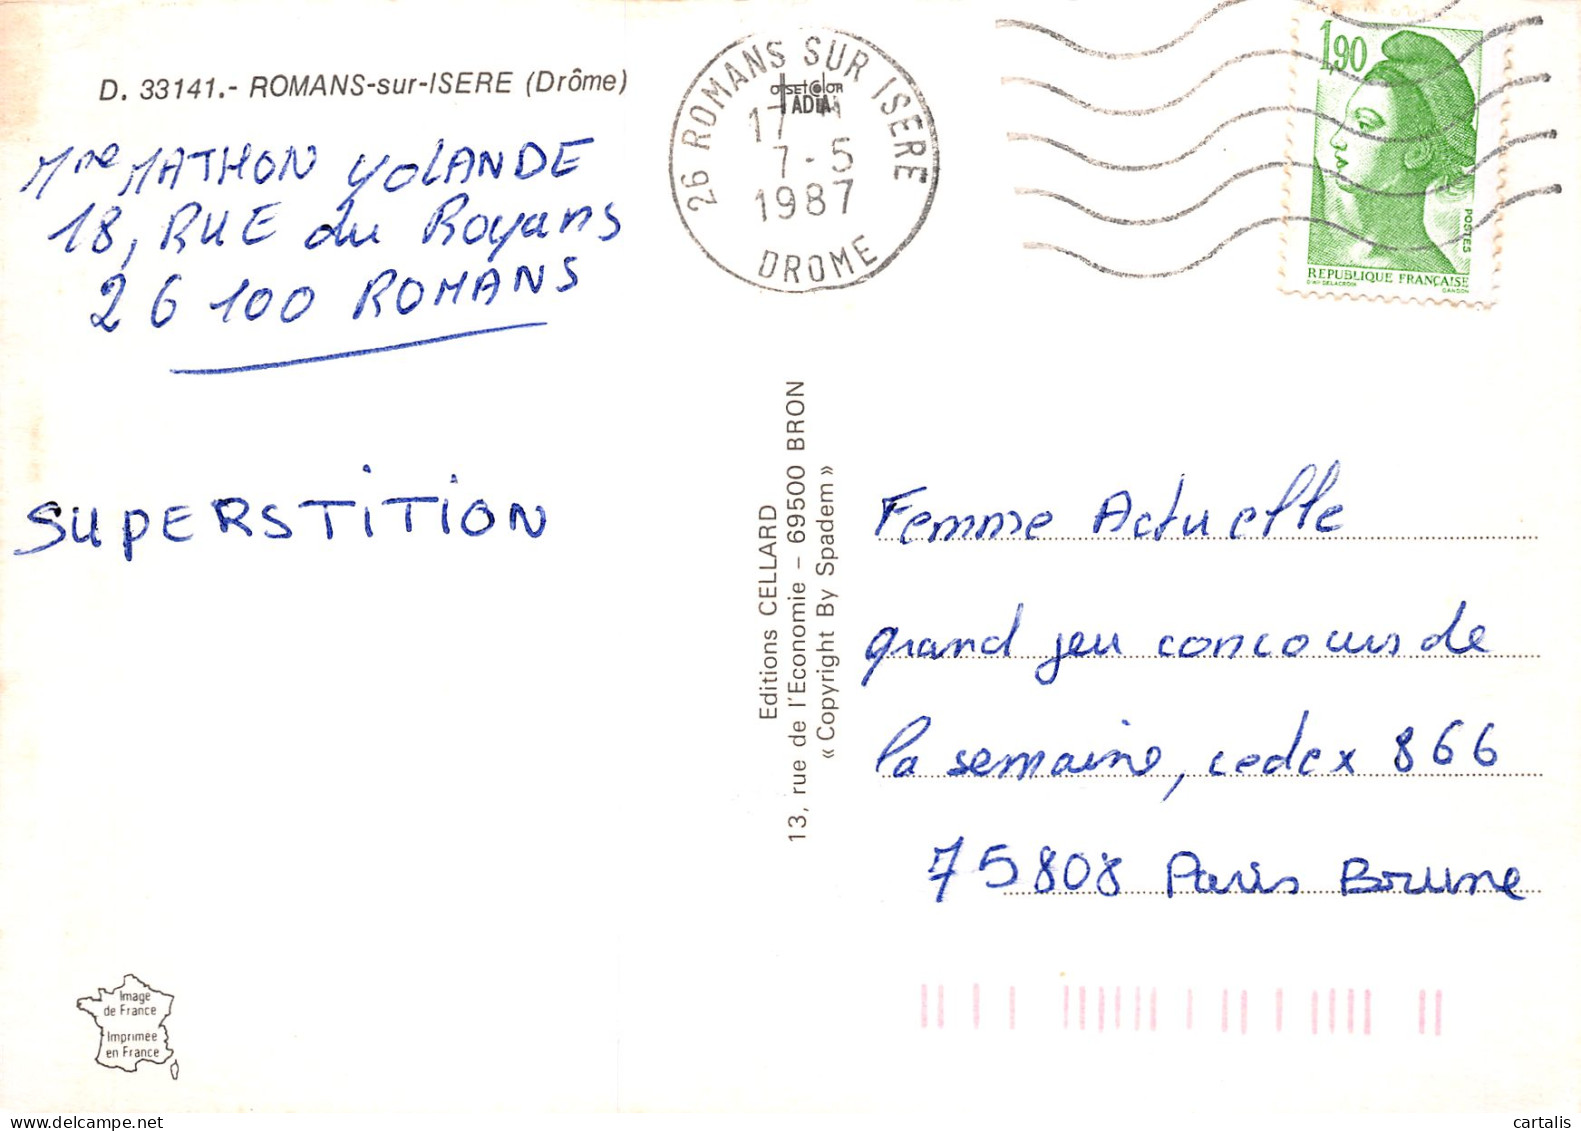 D. 33141.- ROMANS-sur-ISERE (Drôme)
Mme MATHON YOLANDE
18, RUE du Royans
26100 ROMANS
SUPERSTITION
Image
de France
Imprimée
en France
26 ROMANS SUR ISERE
17 H
7-5
1987
DROME
Editions CELLARD
13, rue de l'Economie – 69500 BRON
« Copyright By Spadem »
1,90
POSTES
REPUBLIQUE FRANÇAISE
D'AP. DELACROIX
GANDON
Femme Actuelle
grand jeu concours de
la semaine, cedex 866
75808 Paris Brune
cartalis